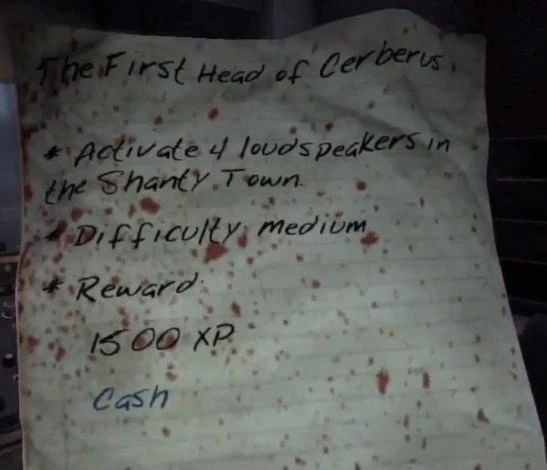 The First Head of Cerberus.
* Activate 4 loudspeakers in
the Shanty Town.
* Difficulty: medium
* Reward:
1500 XP
Cash